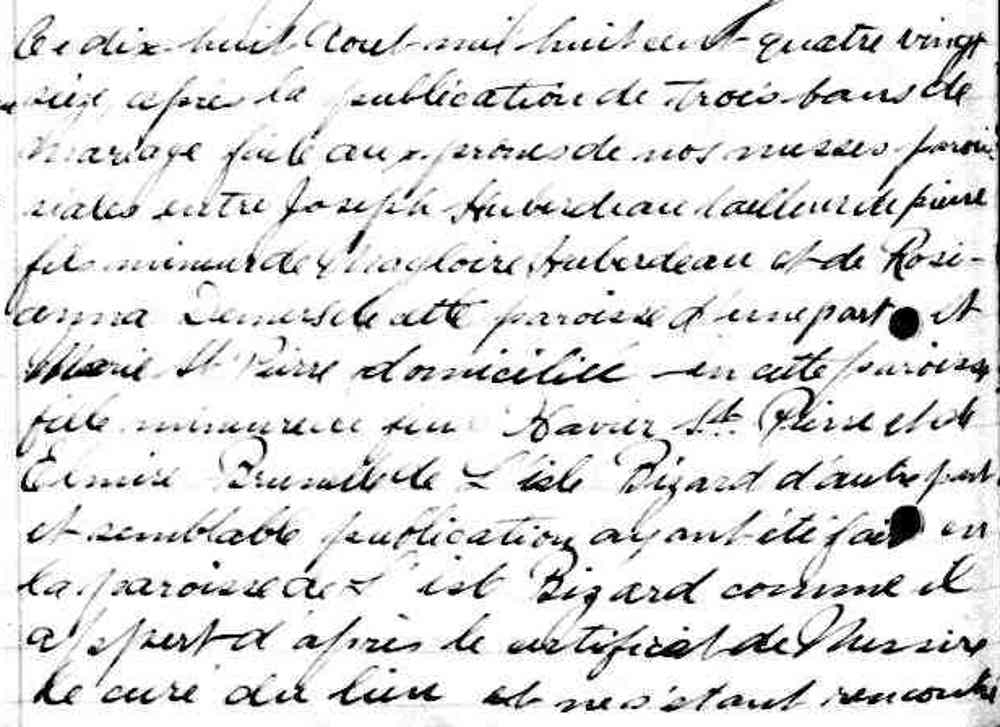 Ce dix huit Aout mil huit cent quatre vingt
seize après la publication de trois bans de
Mariage faite aux prones de nos messes parois
siales entre Joseph Huberdeau tailleur de pierre
fils mineur de Magloire Huberdeau et de Rosi-
anna Demers de cette paroisse d'une part et
Marie St Pierre domiciliée en cette paroisse
fille mineure de feu Xavier St. Pierre et de
Elmire Brunet de L'isle Bizard d'autre part
et semblable publication ayant été fait en
la paroisse de L'isle Bizard comme il
appert d'après le certificat de Messire
le curé du lieu et ne s'étant rencontré